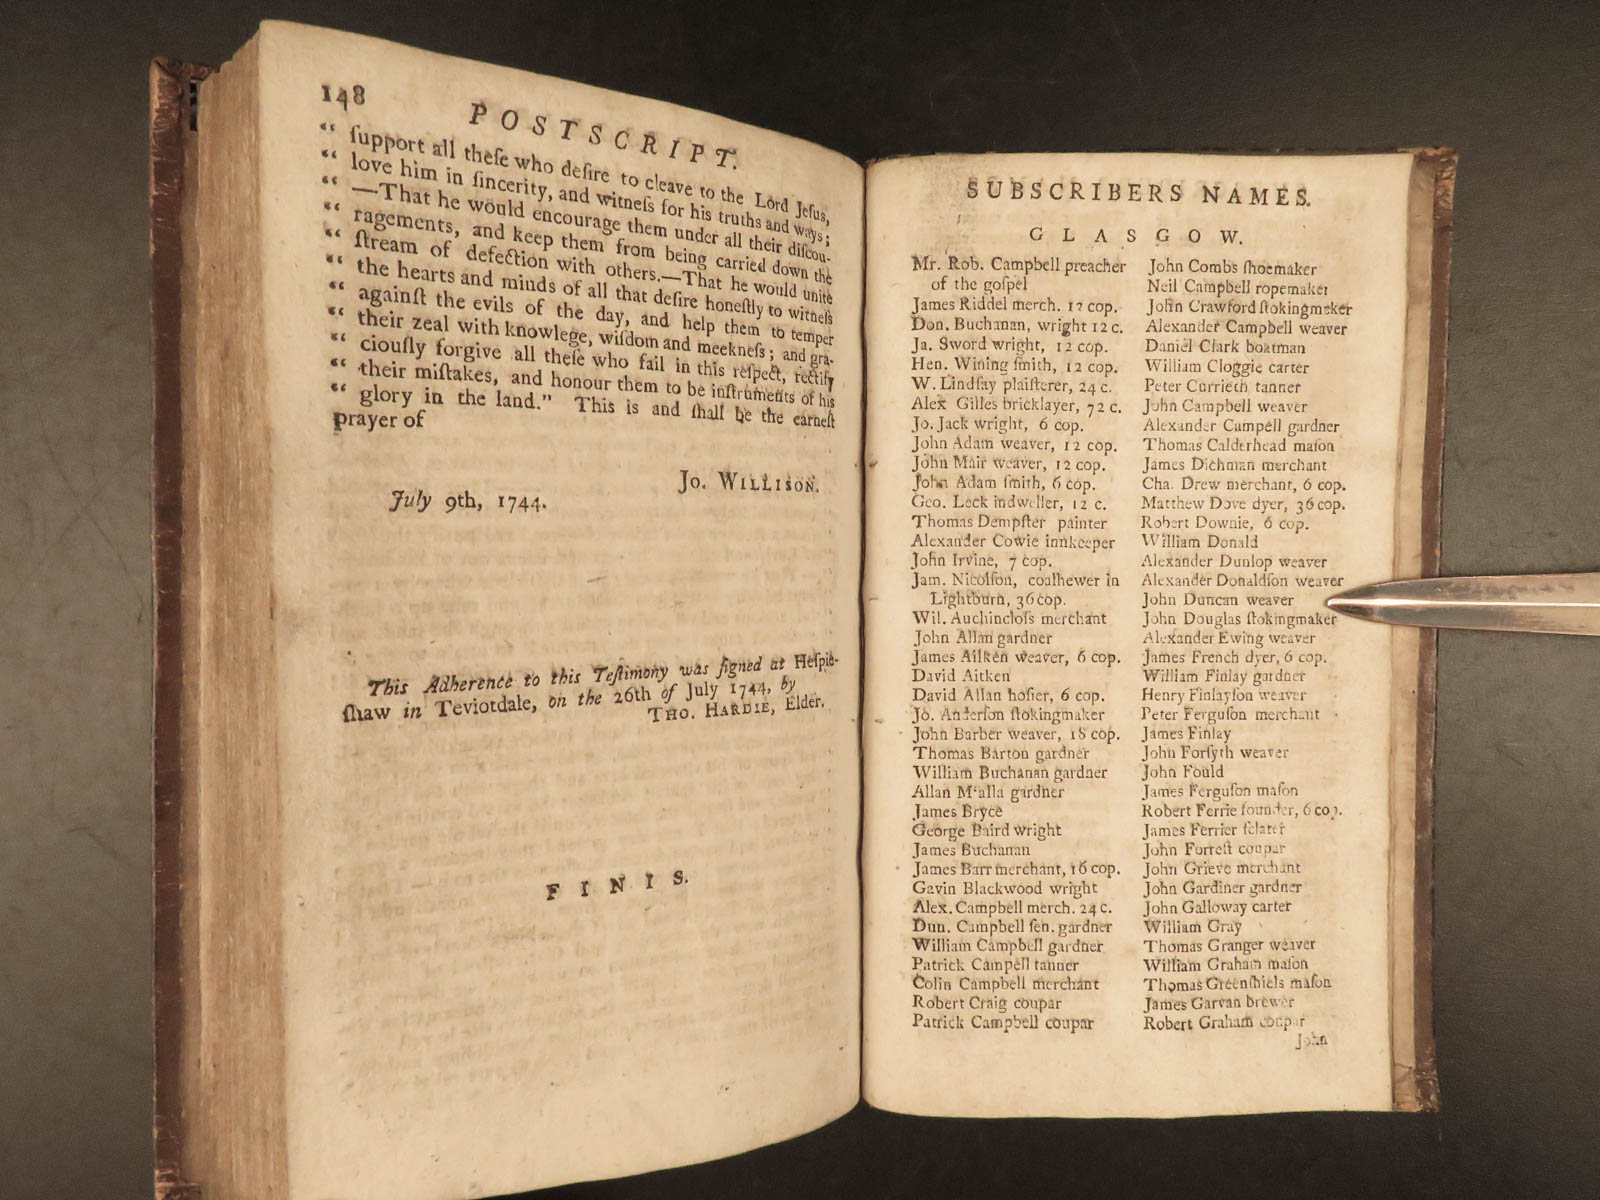 148
POSTSCRIPT.
“ ſupport all theſe who deſire to cleave to the Lord Jeſus,
“ love him in ſincerity, and witneſs for his truths and ways;
“ —That he would encourage them under all their diſcou-
“ ragements, and keep them from being carried down the
“ ſtream of defection with others.—That he would unite
“ the hearts and minds of all that deſire honeſtly to witneſs
“ againſt the evils of the day, and help them to temper
“ their zeal with knowlege, wiſdom and meekneſs; and gra-
“ ciouſly forgive all theſe who fail in this reſpect, rectify
“ their miſtakes, and honour them to be inſtruments of his
“ glory in the land.” This is and ſhall be the earneſt
prayer of
Jo. WILLISON.
July 9th, 1744.
This Adherence to this Teſtimony was ſigned at Heſpie-
ſhaw in Teviotdale, on the 26th of July 1744, by
THO. HARDIE, Elder.
FINIS.
SUBSCRIBERS NAMES.
GLASGOW.
Mr. Rob. Campbell preacher
of the goſpel
James Riddel merch. 12 cop.
Don. Buchanan, wright 12 c.
Ja. Sword wright, 12 cop.
Hen. Wining ſmith, 12 cop.
W. Lindſay plaiſterer, 24 c.
Alex Gilles bricklayer, 72 c.
Jo. Jack wright, 6 cop.
John Adam weaver, 12 cop.
John Mair weaver, 12 cop.
John Adam ſmith, 6 cop.
Geo. Leck indweller, 12 c.
Thomas Dempſter painter
Alexander Cowie innkeeper
John Irvine, 7 cop.
Jam. Nicolſon, coalhewer in
Lightburn, 36 cop.
Wil. Auchincloſs merchant
John Allan gardner
James Aitken weaver, 6 cop.
David Aitken
David Allan hoſier, 6 cop.
Jo. Anderſon ſtokingmaker
John Barber weaver, 18 cop.
Thomas Barton gardner
William Buchanan gardner
Allan M‘alla gardner
James Bryce
George Baird wright
James Buchanan
James Barr merchant, 16 cop.
Gavin Blackwood wright
Alex. Campbell merch. 24 c.
Dun. Campbell ſen. gardner
William Campbell gardner
Patrick Campell tanner
Colin Campbell merchant
Robert Craig coupar
Patrick Campbell coupar
John Combs ſhoemaker
Neil Campbell ropemaker
John Crawford ſtokingmaker
Alexander Campbell weaver
Daniel Clark boatman
William Cloggie carter
Peter Currieth tanner
John Campbell weaver
Alexander Campell gardner
Thomas Calderhead maſon
James Dichman merchant
Cha. Drew merchant, 6 cop.
Matthew Dove dyer, 36 cop.
Robert Downie, 6 cop.
William Donald
Alexander Dunlop weaver
Alexander Donaldſon weaver
John Duncan weaver
John Douglas ſtokingmaker
Alexander Ewing weaver
James French dyer, 6 cop.
William Finlay gardner
Henry Finlayſon weaver
Peter Ferguſon merchant
James Finlay
John Forſyth weaver
John Fould
James Ferguſon maſon
Robert Ferrie founder, 6 cop.
James Ferrier ſclater
John Forreſt coupar
John Grieve merchant
John Gardiner gardner
John Galloway carter
William Gray
Thomas Granger weaver
William Graham maſon
Thomas Greenſhiels maſon
James Garvan brewer
Robert Graham coupar
John